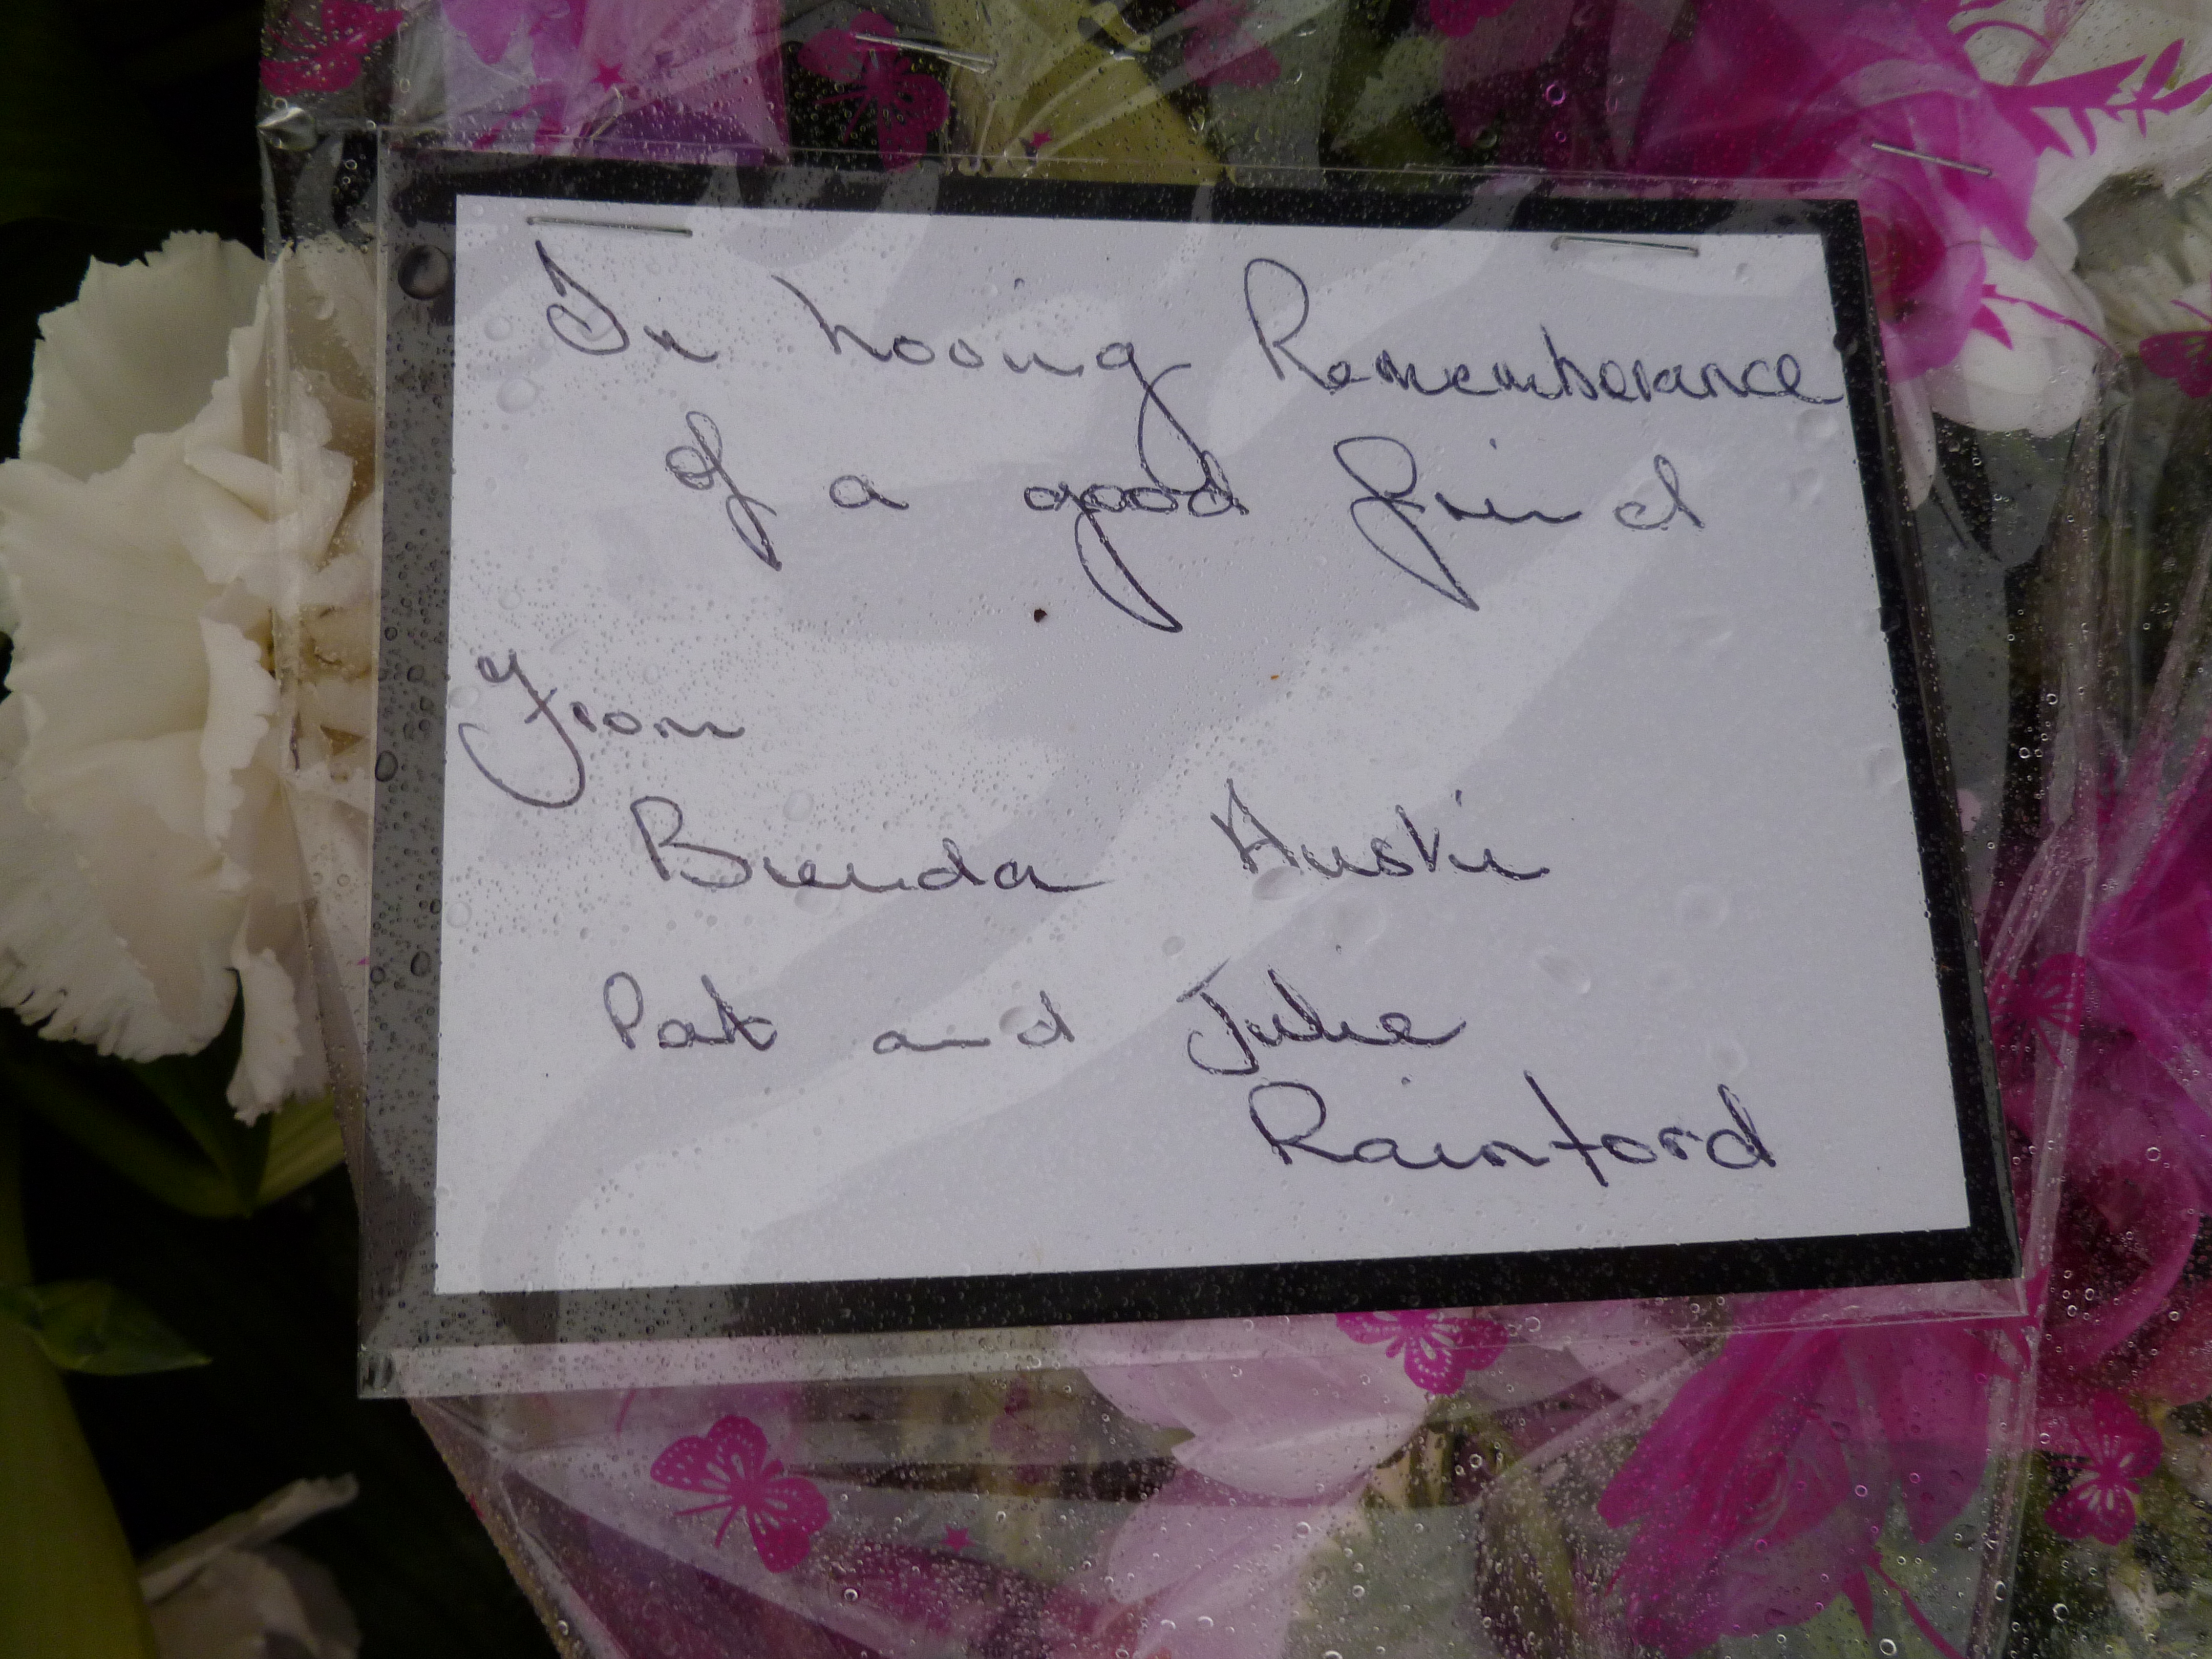 In Loving Rememberance
of a good friend
From
Brenda Huskie
Pat and Julie
Rainford